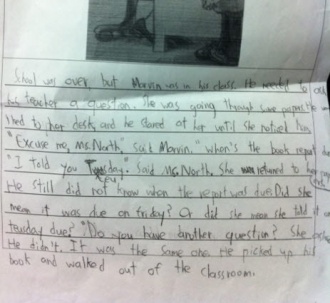 School was over, but Marvin was in his class. He needed to
his teacher a question. She was going through some papers. He
to her desk, and he stared at her until she noticed him.
"Excuse me, Ms. North," said Marvin. "when's the book report
"I told you Tuesday." said Ms. North. She returned to her
He still did not know when the report was due. Did she
mean it was due on friday? Or did she mean she told it
tuesday due? "Do you have another question? She
He didn't. It was the same one. He picked up his
book and walked out of the classroom.